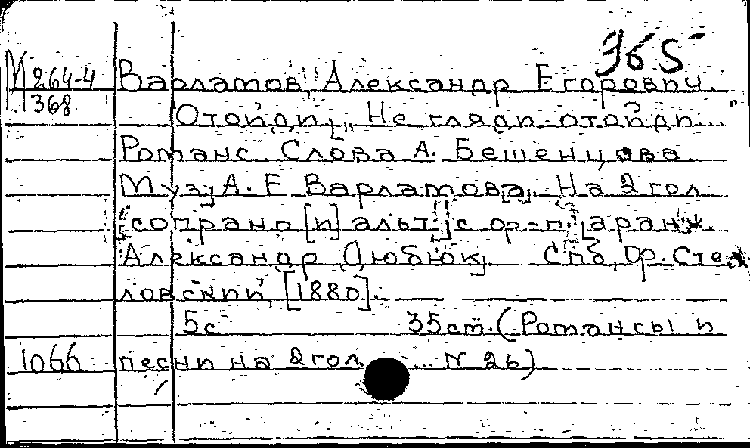 965
М 264-4 Варламов, Александр Егорович.
368 Отойди! "Не гляди отойди..."
Романс. Слова А. Бешенцова
Муз. А. Е. Варламова. На 2 гол.
[сопрано [и] альт] с ф-п. [аранж.
Александр Дюбюк]. Спб, Ф. Сте
ловский, [1880].
5с 35см. (Романсы и
1066 песни на 2 гол. ... N 26)